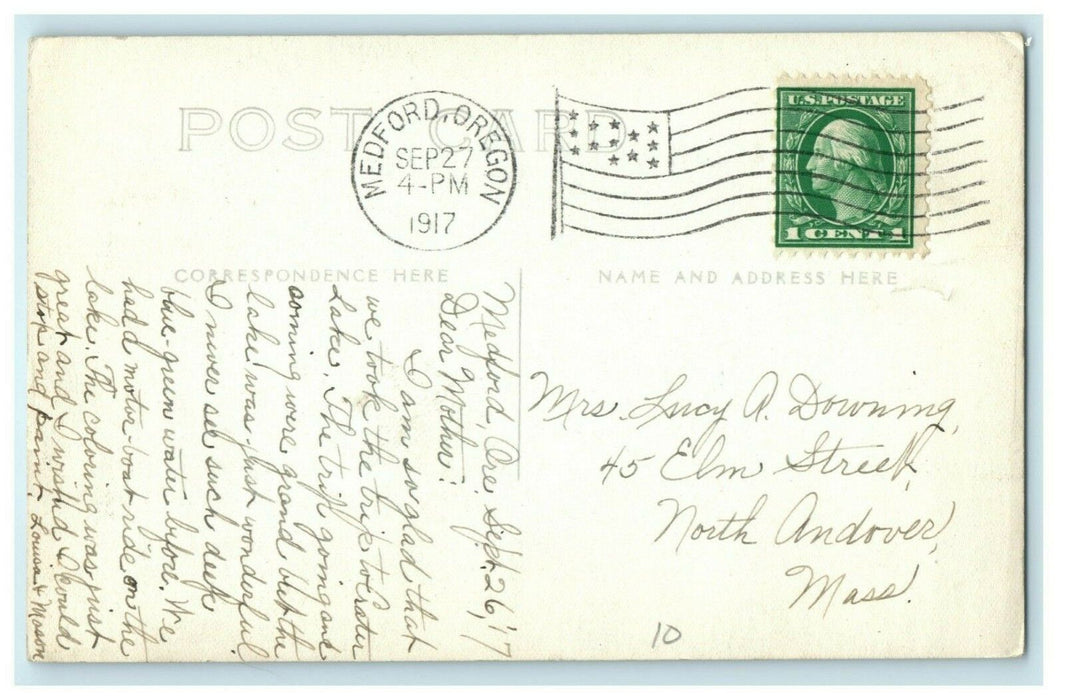 POST CARD
MEDFORD, OREGON
SEP 27
4-PM
1917
U.S. POSTAGE
1 CENT 1
CORRESPONDENCE HERE
NAME AND ADDRESS HERE
Medford, Ore. Sept. 26, '17
Dear Mother:
I am so glad that
we took the trip to Crater
Lake. The trip going and
coming were grand but the
lake was just wonderful.
I never see such deep
blue-green water before. We
had a motor-boat ride on the
lake. The coloring was just
great and I wished I could
stop and paint. Louisa & Mason
Mrs. Lucy A. Downing,
45 Elm Street,
North Andover,
Mass.
10